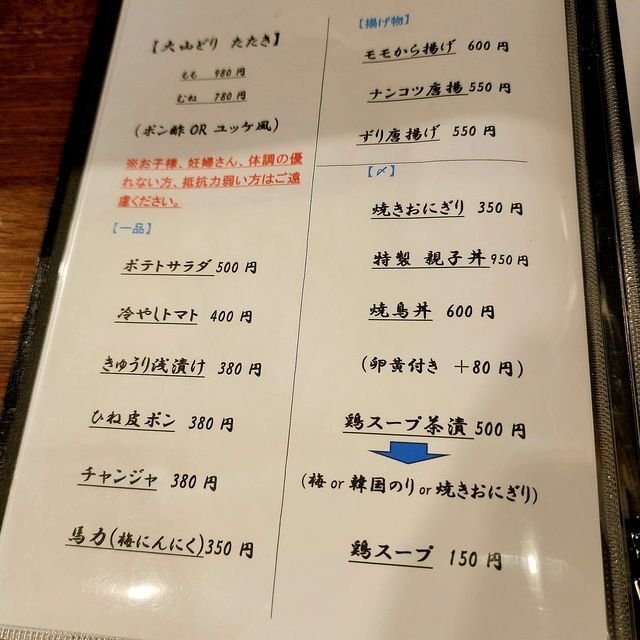 【大山どり たたき】
もも 980円
むね 780円
(ポン酢OR ユッケ風)
※お子様、妊婦さん、体調の優
れない方、抵抗力弱い方はご遠
慮ください。
【一品】
ポテトサラダ 500円
冷やしトマト 400円
きゅうり浅漬け 380円
ひね皮ポン 380円
チャンジャ 380円
馬力(梅にんにく)350円
【揚げ物】
モモから揚げ 600円
ナンコツ唐揚 550円
ずり唐揚げ 550円
【〆】
焼きおにぎり 350円
特製 親子丼 950円
焼鳥丼 600円
(卵黄付き +80円)
鶏スープ茶漬 500円
(梅or韓国のりor焼きおにぎり)
鶏スープ 150円